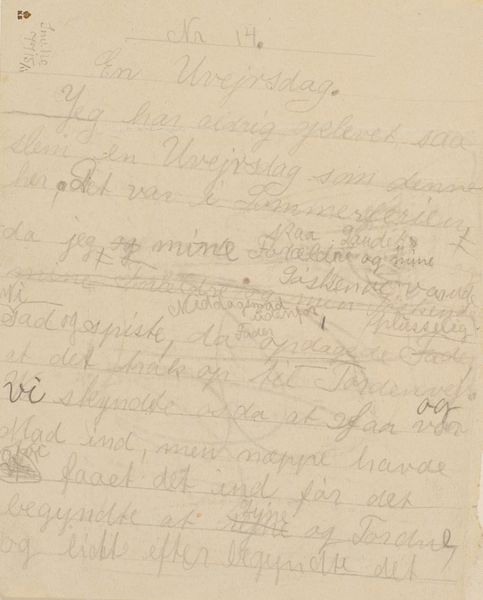 Nr 14.
En Uvejrsdag.
Jeg har aldrig oplevet saa
slem en Uvejrsdag som denne
her, Det var i Sommerferien,
paa Landet
da jeg og mine Forældre og mine
Søskende var
mine Forældre og mine
Middagsmad udenfor, pludselig
Vi sad og spiste, da opdagede Fader
Fader
at det trak op til Tordenvejr
Vi skyndte os da at faa vor
og
Mad ind, men næppe havde
faaet det ind før det
lyne
begyndte at regne og Tordne,
og lidt efter begyndte det